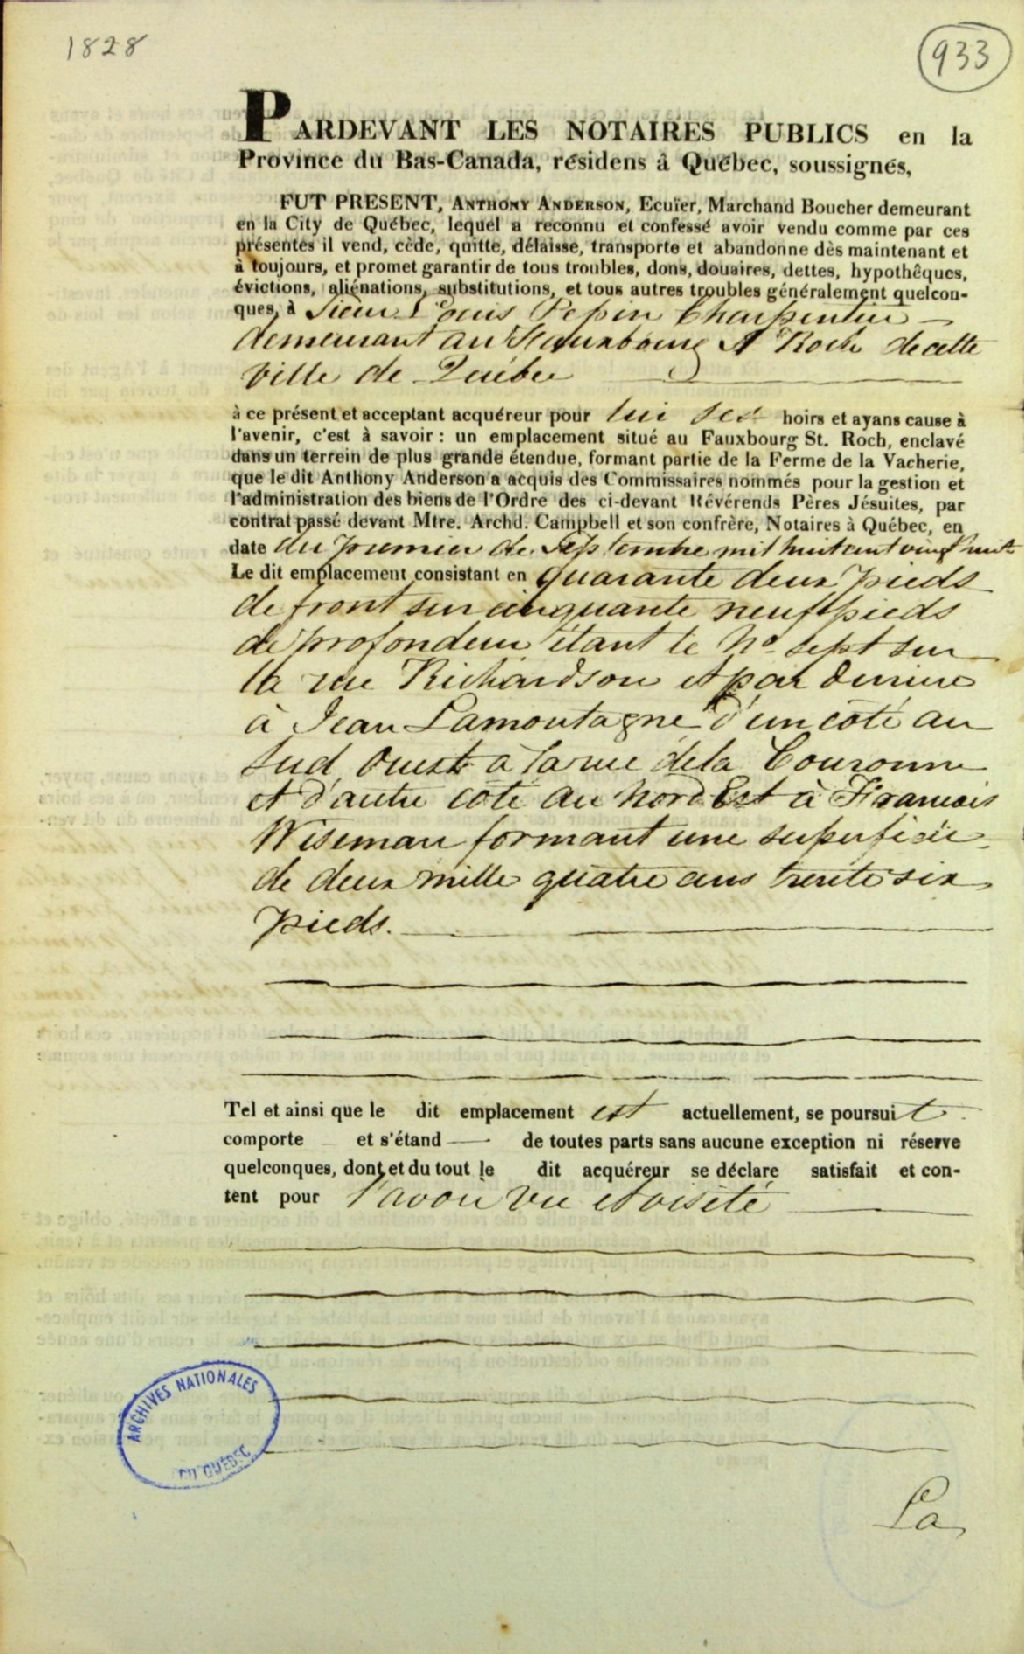 1828
933
PARDEVANT LES NOTAIRES PUBLICS en la
Province du Bas-Canada, résidens à Québec, soussignés,
FUT PRESENT, ANTHONY ANDERSON, Ecuïer, Marchand Boucher demeurant
en la City de Québec, lequel a reconnu et confessé avoir vendu comme par ces
présentes il vend, cède, quitte, délaisse, transporte et abandonne dès maintenant et
à toujours, et promet garantir de tous troubles, dons, douaires, dettes, hypothêques,
évictions, aliénations, substitutions, et tous autres troubles généralement quelcon-
ques, à Sieur Louis Pepin Charpentier
demeurant au Fauxbourg St Roch de cette
ville de Québec
à ce présent et acceptant acquéreur pour lui ses hoirs et ayans cause à
l'avenir, c'est à savoir : un emplacement situé au Fauxbourg St. Roch, enclavé
dans un terrein de plus grande étendue, formant partie de la Ferme de la Vacherie,
que le dit Anthony Anderson a acquis des Commissaires nommés pour la gestion et
l'administration des biens de l'Ordre des ci-devant Révérends Pères Jésuites, par
contrat passé devant Mtre. Archd. Campbell et son confrère, Notaires à Québec, en
date du premier de Septembre mil huit cent vingt huit
Le dit emplacement consistant en quarante deux pieds
de front sur cinquante neuf pieds
de profondeur étant le No. sept sur
la rue Richardson et par derriere
à Jean Lamontagne d'un coté au
Sud Ouest à la rue de la Couronne
et d'autre coté au Nord Est à Francois
Wiseman formant une superficie
de deux mille quatre cens trente six
pieds.
Tel et ainsi que le dit emplacement est actuellement, se poursuit
comporte et s'étand de toutes parts sans aucune exception ni réserve
quelconques, dont et du tout le dit acquéreur se déclare satisfait et con-
tent pour l'avoir vu et visité
ARCHIVES NATIONALES
DU QUÉBEC
La